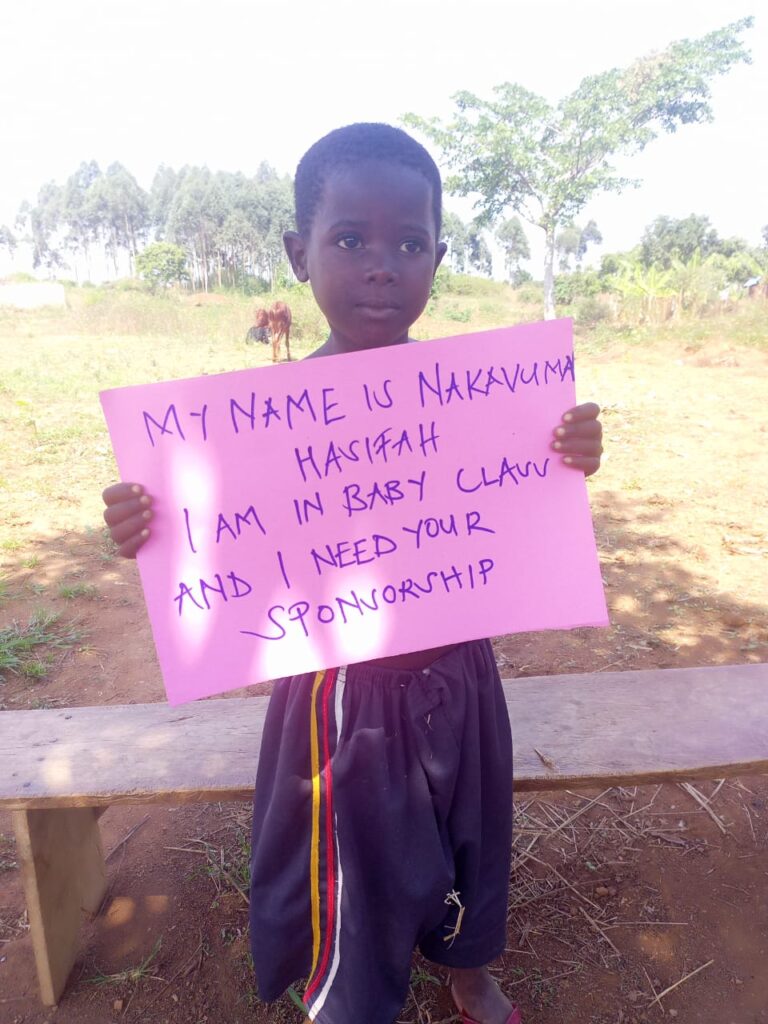 MY NAME IS NAKAVUMA
HASIFAH
I AM IN BABY CLASS
AND I NEED YOUR
SPONSORSHIP